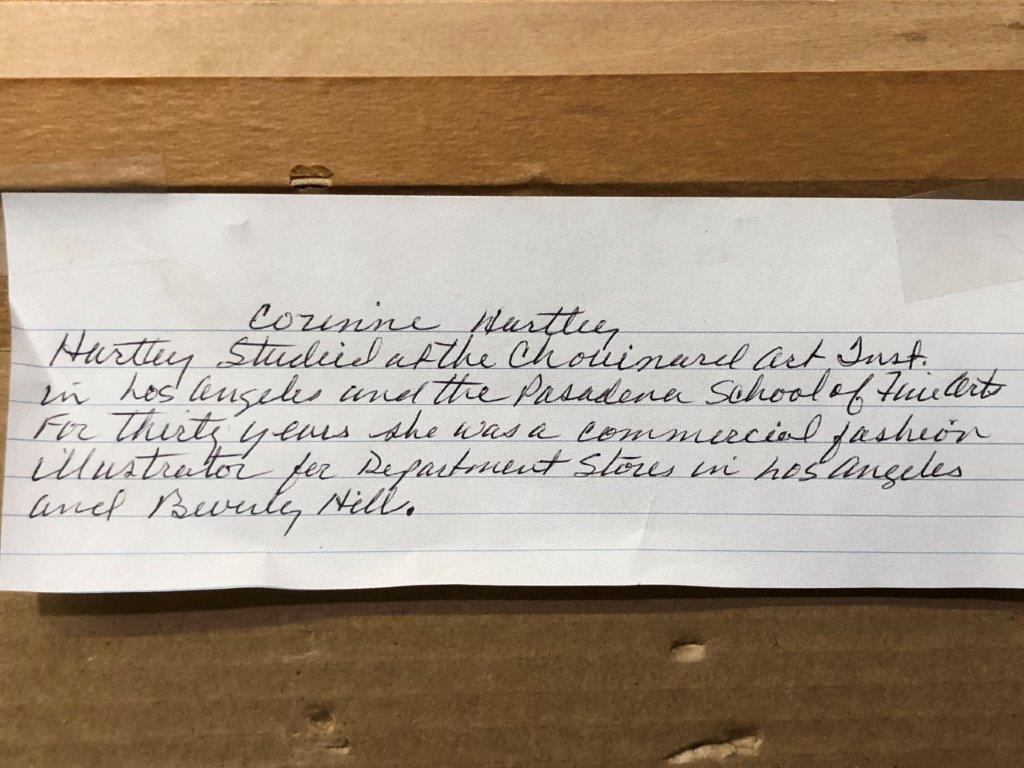 Corinne Hartley
Hartley Studied at the Chouinard Art Inst.
in Los Angeles and the Pasadena School of Fine Arts
For thirty years she was a commercial fashion
illustrator for Department Stores in Los Angeles
and Beverly Hill.